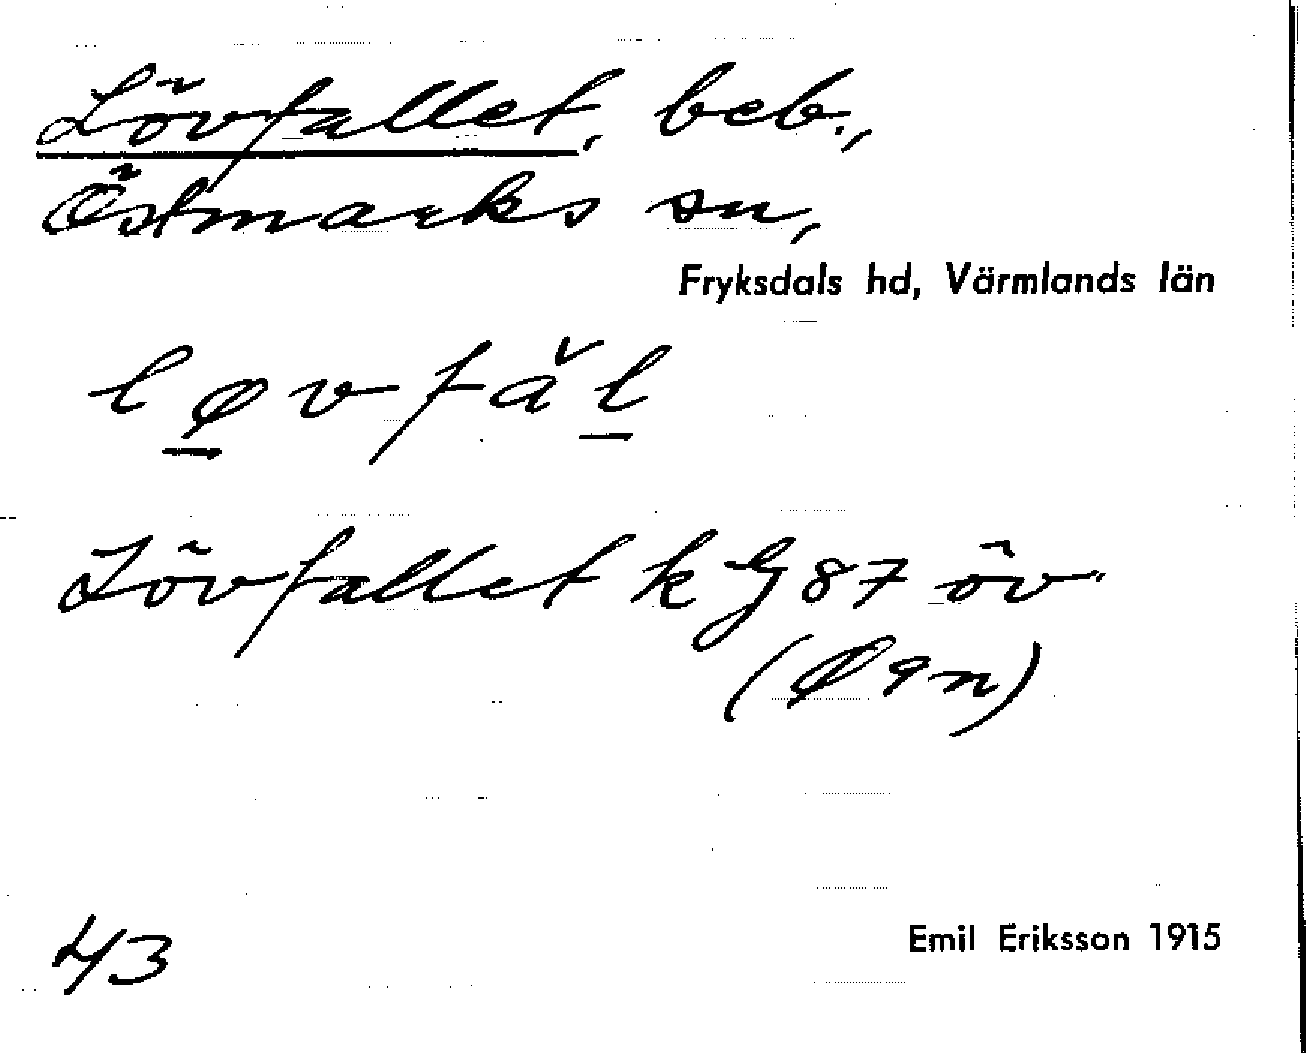 Lövfallet, beb.,
Östmarks sn,
Fryksdals hd, Värmlands län
løvfǎl
Lövfallet k G 87 öv
(Ø 9 n)
43
Emil Eriksson 1915